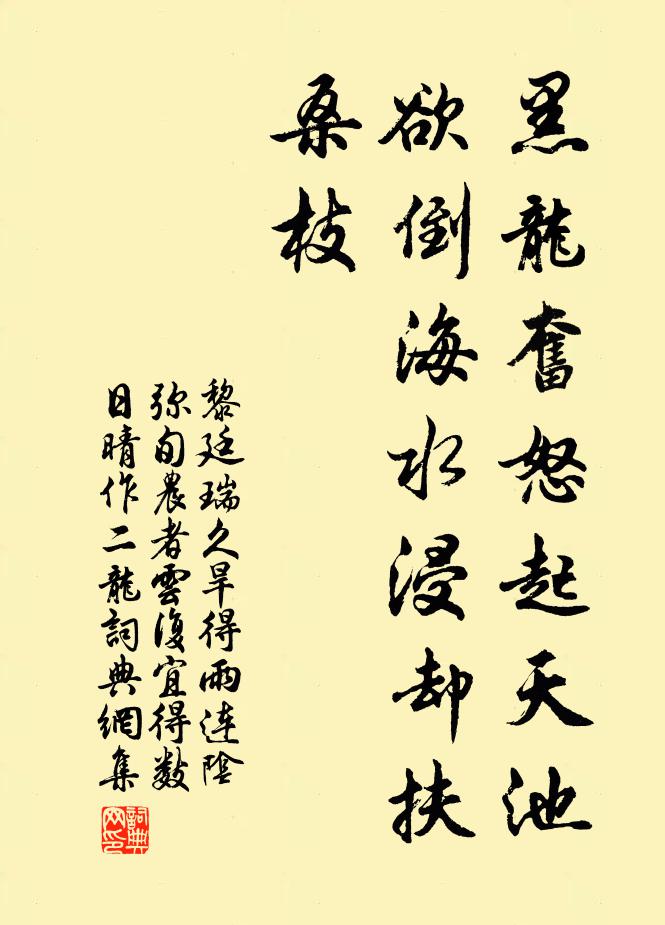 黑龍奮怒起天池
欲倒海水浸却扶
桑枝
黎廷瑞久旱得雨連陰
弥旬農者雲復宜得数
日晴作二龍詞典網集
詞典
网印